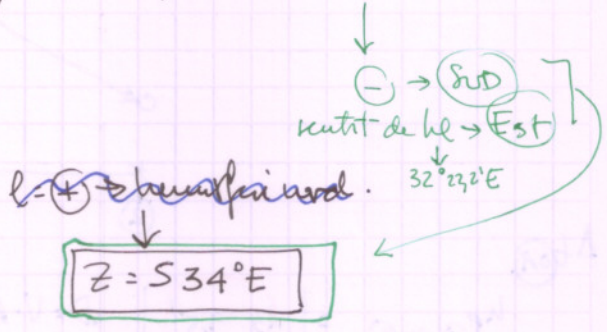 ⊖ → SUD
sentit de hl → Est
↓
32°23,2'E
l = ⊕ →
Z = S34°E